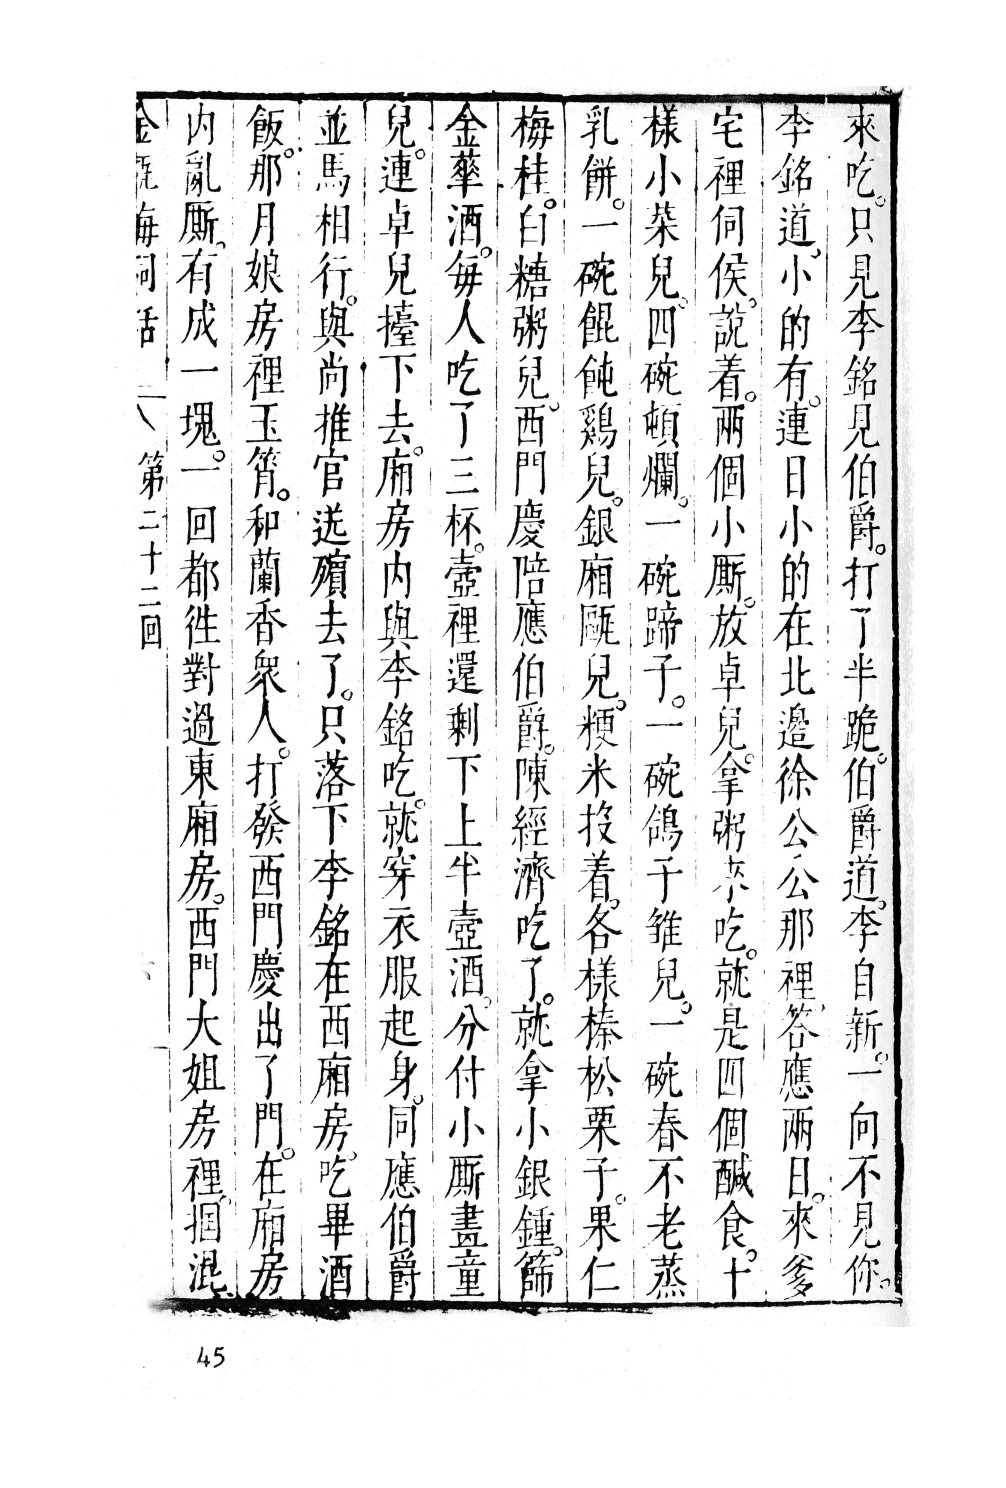 來吃。只見李銘見伯爵。打了半跪。伯爵道。李自新。一向不見你。
李銘道。小的有。連日小的在北邊徐公公那裡答應兩日。來爹
宅裡伺侯。說着。兩個小厮。放卓兒。拿粥來吃。就是四個醎食。十
樣小菜兒。四碗頓爛。一碗蹄子。一碗鴿子雛兒。一碗春不老蒸
乳餅。一碗餛飩鷄兒。銀廂甌兒。粳米投着。各樣榛松栗子。果仁
梅桂。白糖粥兒。西門慶陪應伯爵。陳經濟吃了。就拿小銀鍾。篩
金華酒。每人吃了三杯。壺裡還剩下上半壺酒。分付小厮畫童
兒。連卓兒擡下去。廂房內與李銘吃。就穿衣服起身。同應伯爵
並馬相行。與尚推官送殯去了。只落下李銘在西廂房。吃畢酒
飯。那月娘房裡玉筲。和蘭香衆人。打發西門慶出了門。在廂房
內亂厮。有成一塊。一回都徃對過東廂房。西門大姐房裡。掴混
金瓶梅詞話 第二十二回
45